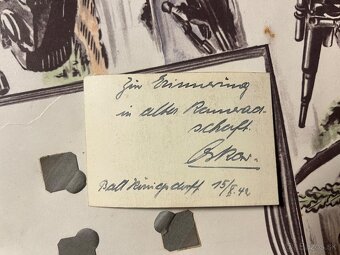 Zur Erinnerung
in alter Kamerad-
schaft.
Oskar.
Bad Königsdorff 15/X.42